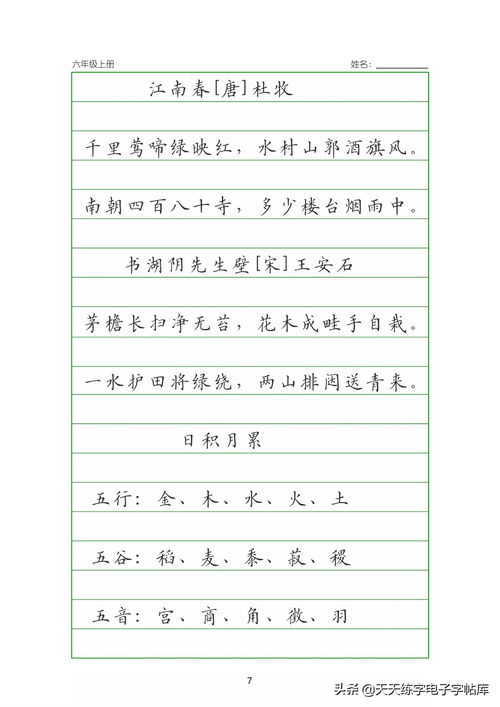 六年级上册 姓名:
江南春[唐]杜牧
千里莺啼绿映红，水村山郭酒旗风。
南朝四百八十寺，多少楼台烟雨中。
书湖阴先生壁[宋]王安石
茅檐长扫净无苔，花木成畦手自栽。
一水护田将绿绕，两山排闼送青来。
日积月累
五行：金、木、水、火、土
五谷：稻、麦、黍、菽、稷
五音：宫、商、角、徵、羽
7
头条 @天天练字电子字帖库